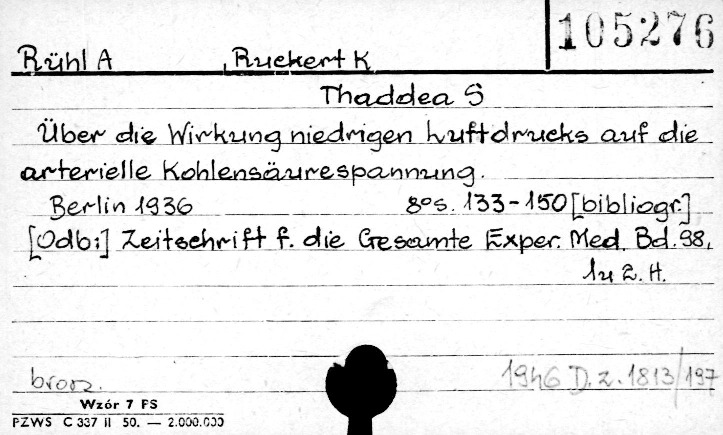 105276
Rühl A , Ruckert K
Thaddea S
Über die Wirkung niedrigen Luftdrucks auf die
arterielle Kohlensäurespannung.
Berlin 1936 8° s. 133-150 [bibliogr.]
[Odb:] Zeitschrift f. die Gesamte Exper. Med. Bd. 98,
1u 2. H.
brosz. 1946 D. z. 1813/197
Wzór 7 FS
PZWS C 337 II 50. — 2.000.000